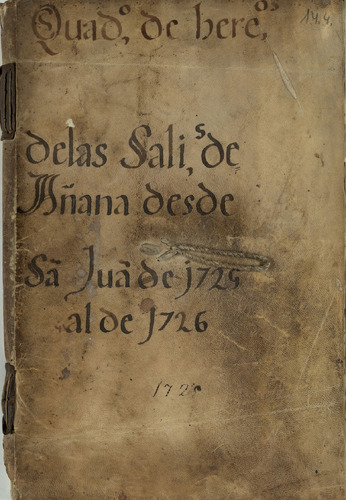 Quadº. de hereºs,
delas Salis, de
Añana desde
Sã Juã de 1725
al de 1726
1725